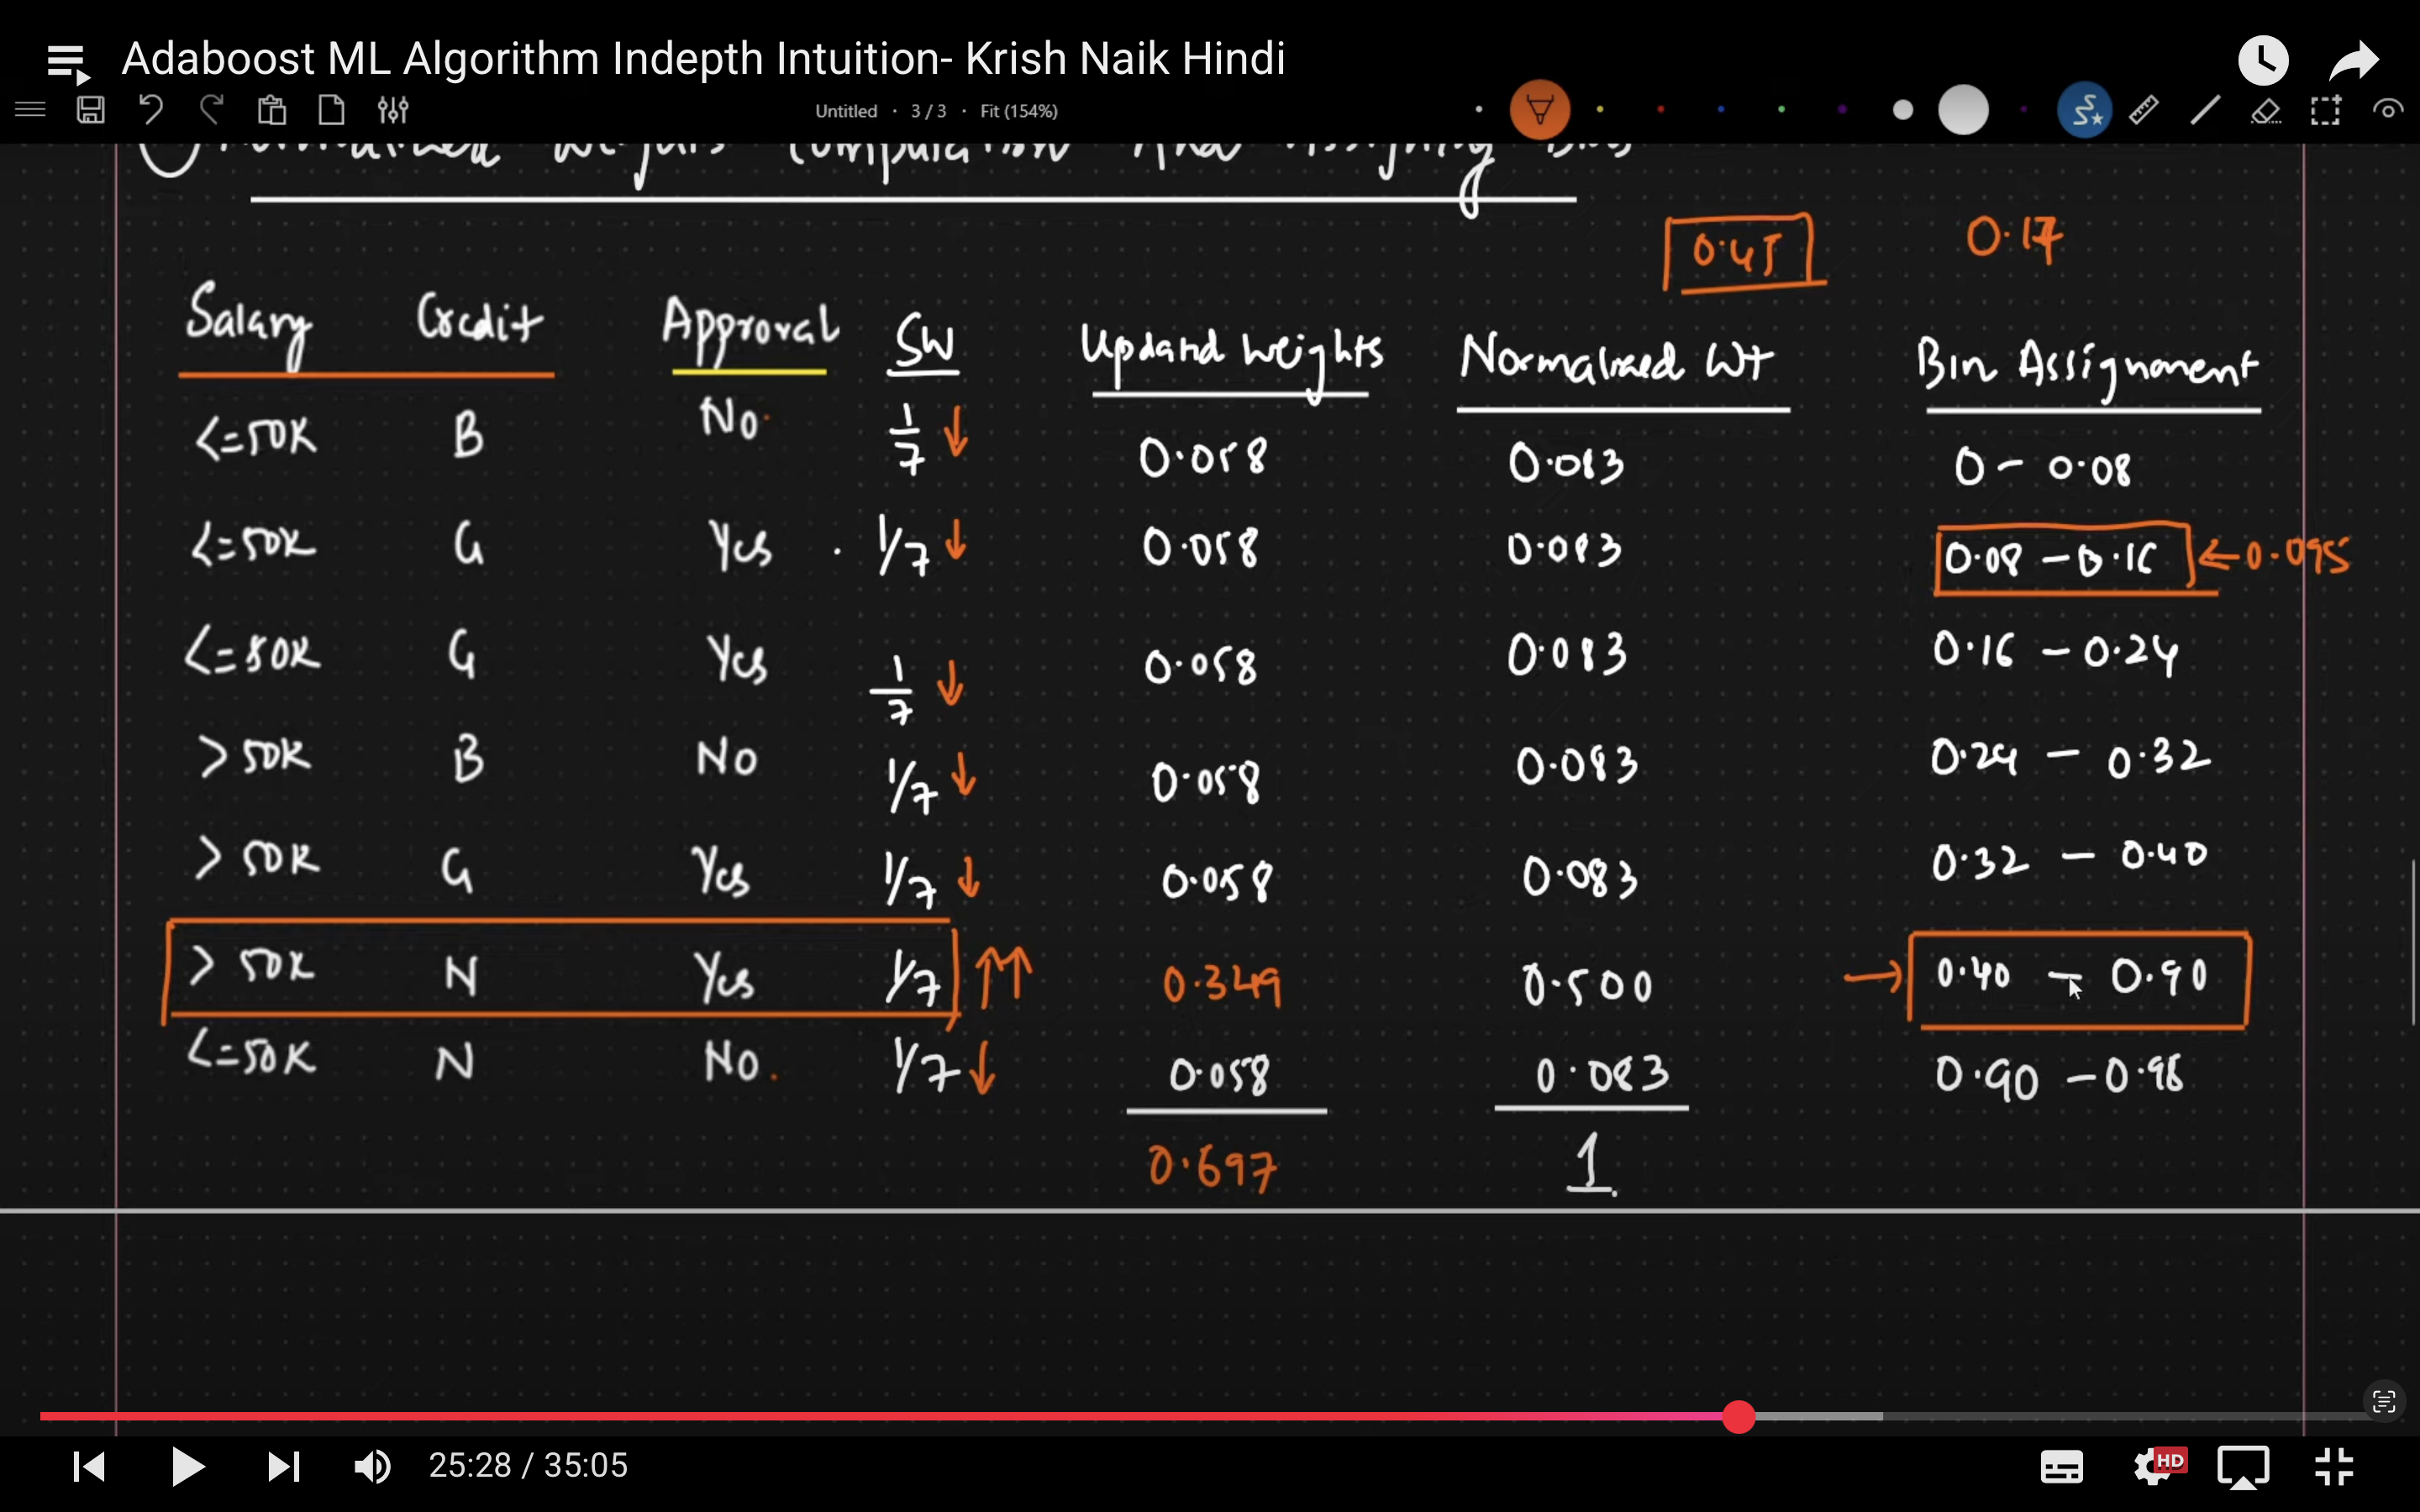 Adaboost ML Algorithm Indepth Intuition- Krish Naik Hindi
Untitled · 3 / 3 · Fit (154%)
Normalized Weights Computation And Assigning Bins
0.45 0.17
Salary Credit Approval SW Updated Weights Normalized Wt Bin Assignment
<=50K B No 1/7 ↓ 0.058 0.083 0 - 0.08
<=50K G Yes 1/7 ↓ 0.058 0.083 0.08 - 0.16 ← 0.095
<=50K G Yes 1/7 ↓ 0.058 0.083 0.16 - 0.24
> 50K B No 1/7 ↓ 0.058 0.083 0.24 - 0.32
> 50K G Yes 1/7 ↓ 0.058 0.083 0.32 - 0.40
> 50K N Yes 1/7 ↑↑ 0.349 0.500 → 0.40 - 0.90
<=50K N No 1/7 ↓ 0.058 0.083 0.90 - 0.98
0.697 1
25:28 / 35:05 HD